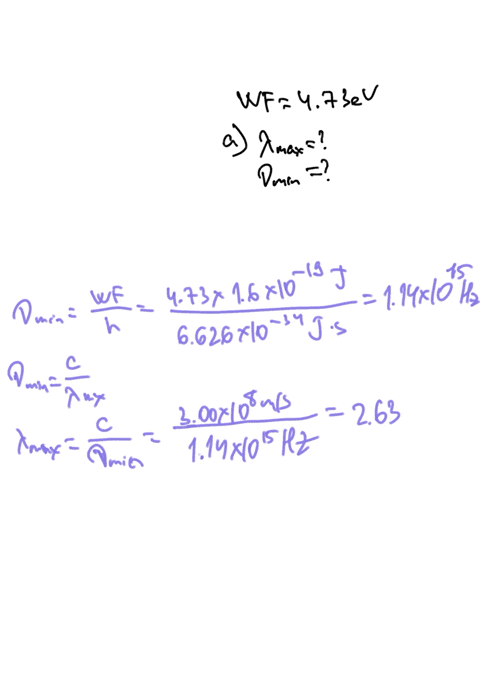 WF = 4.73eV
a) λmax = ?
νmin = ?
νmin = WF/h = 4.73 × 1.6 × 10^-19 J / 6.626 × 10^-34 J·s = 1.14 × 10^15 Hz
νmin = c/λmax
λmax = c/νmin = 3.00 × 10^8 m/s / 1.14 × 10^15 Hz = 2.63